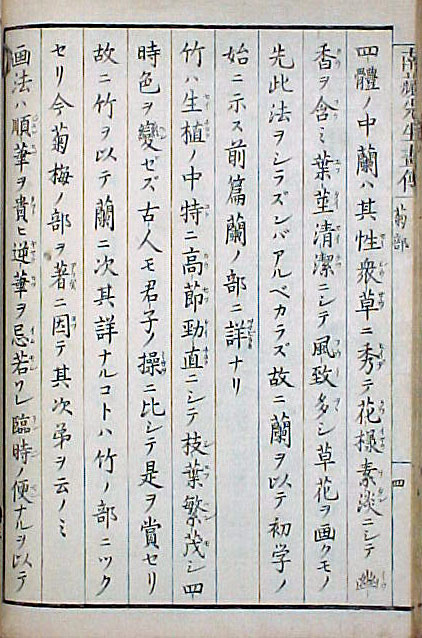 四體ノ中蘭ハ其性衆草ニ秀テ花様素淡ニシテ幽
香ヲ含ミ葉莖清潔ニシテ風致多シ草花ヲ画クモノ
先此法ヲシラズンバアルベカラズ故ニ蘭ヲ以テ初学ノ
始ニ示ス前篇蘭ノ部ニ詳ナリ
竹ハ生植ノ中特ニ高節勁直ニシテ枝葉繁茂シ四
時色ヲ變ゼズ古人モ君子ノ操ニ比シテ是ヲ賞セリ
故ニ竹ヲ以テ蘭ニ次其詳ナルコトハ竹ノ部ニツク
セリ今菊梅ノ部ヲ著ニ因テ其次弟ヲ云ノミ
画法ハ順華ヲ貴ヒ逆華ヲ忌若ワレ臨時ノ便ナルヲ以テ
先生畫傳
菊部
四